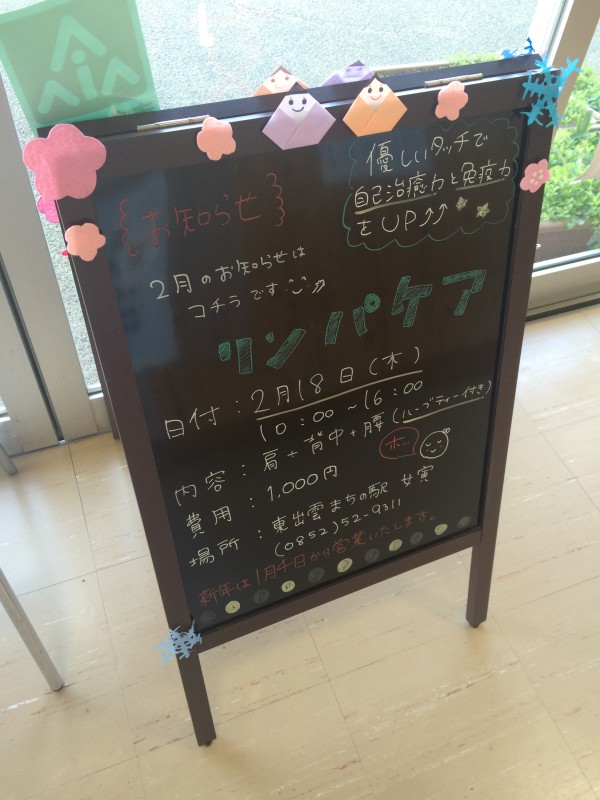 お知らせ
優しいタッチで
自己治癒力と免疫力
をUP↑↑
2月のお知らせは
コチラです
リンパケア
日付：2月18日(木)
10:00~16:00
内容：肩+背中+腰(ルーブティー付き)
ホッ
費用：1,000円
場所：東出雲まちの駅 女寅
(0852)52-9311
新年は1月4日から営業いたします。